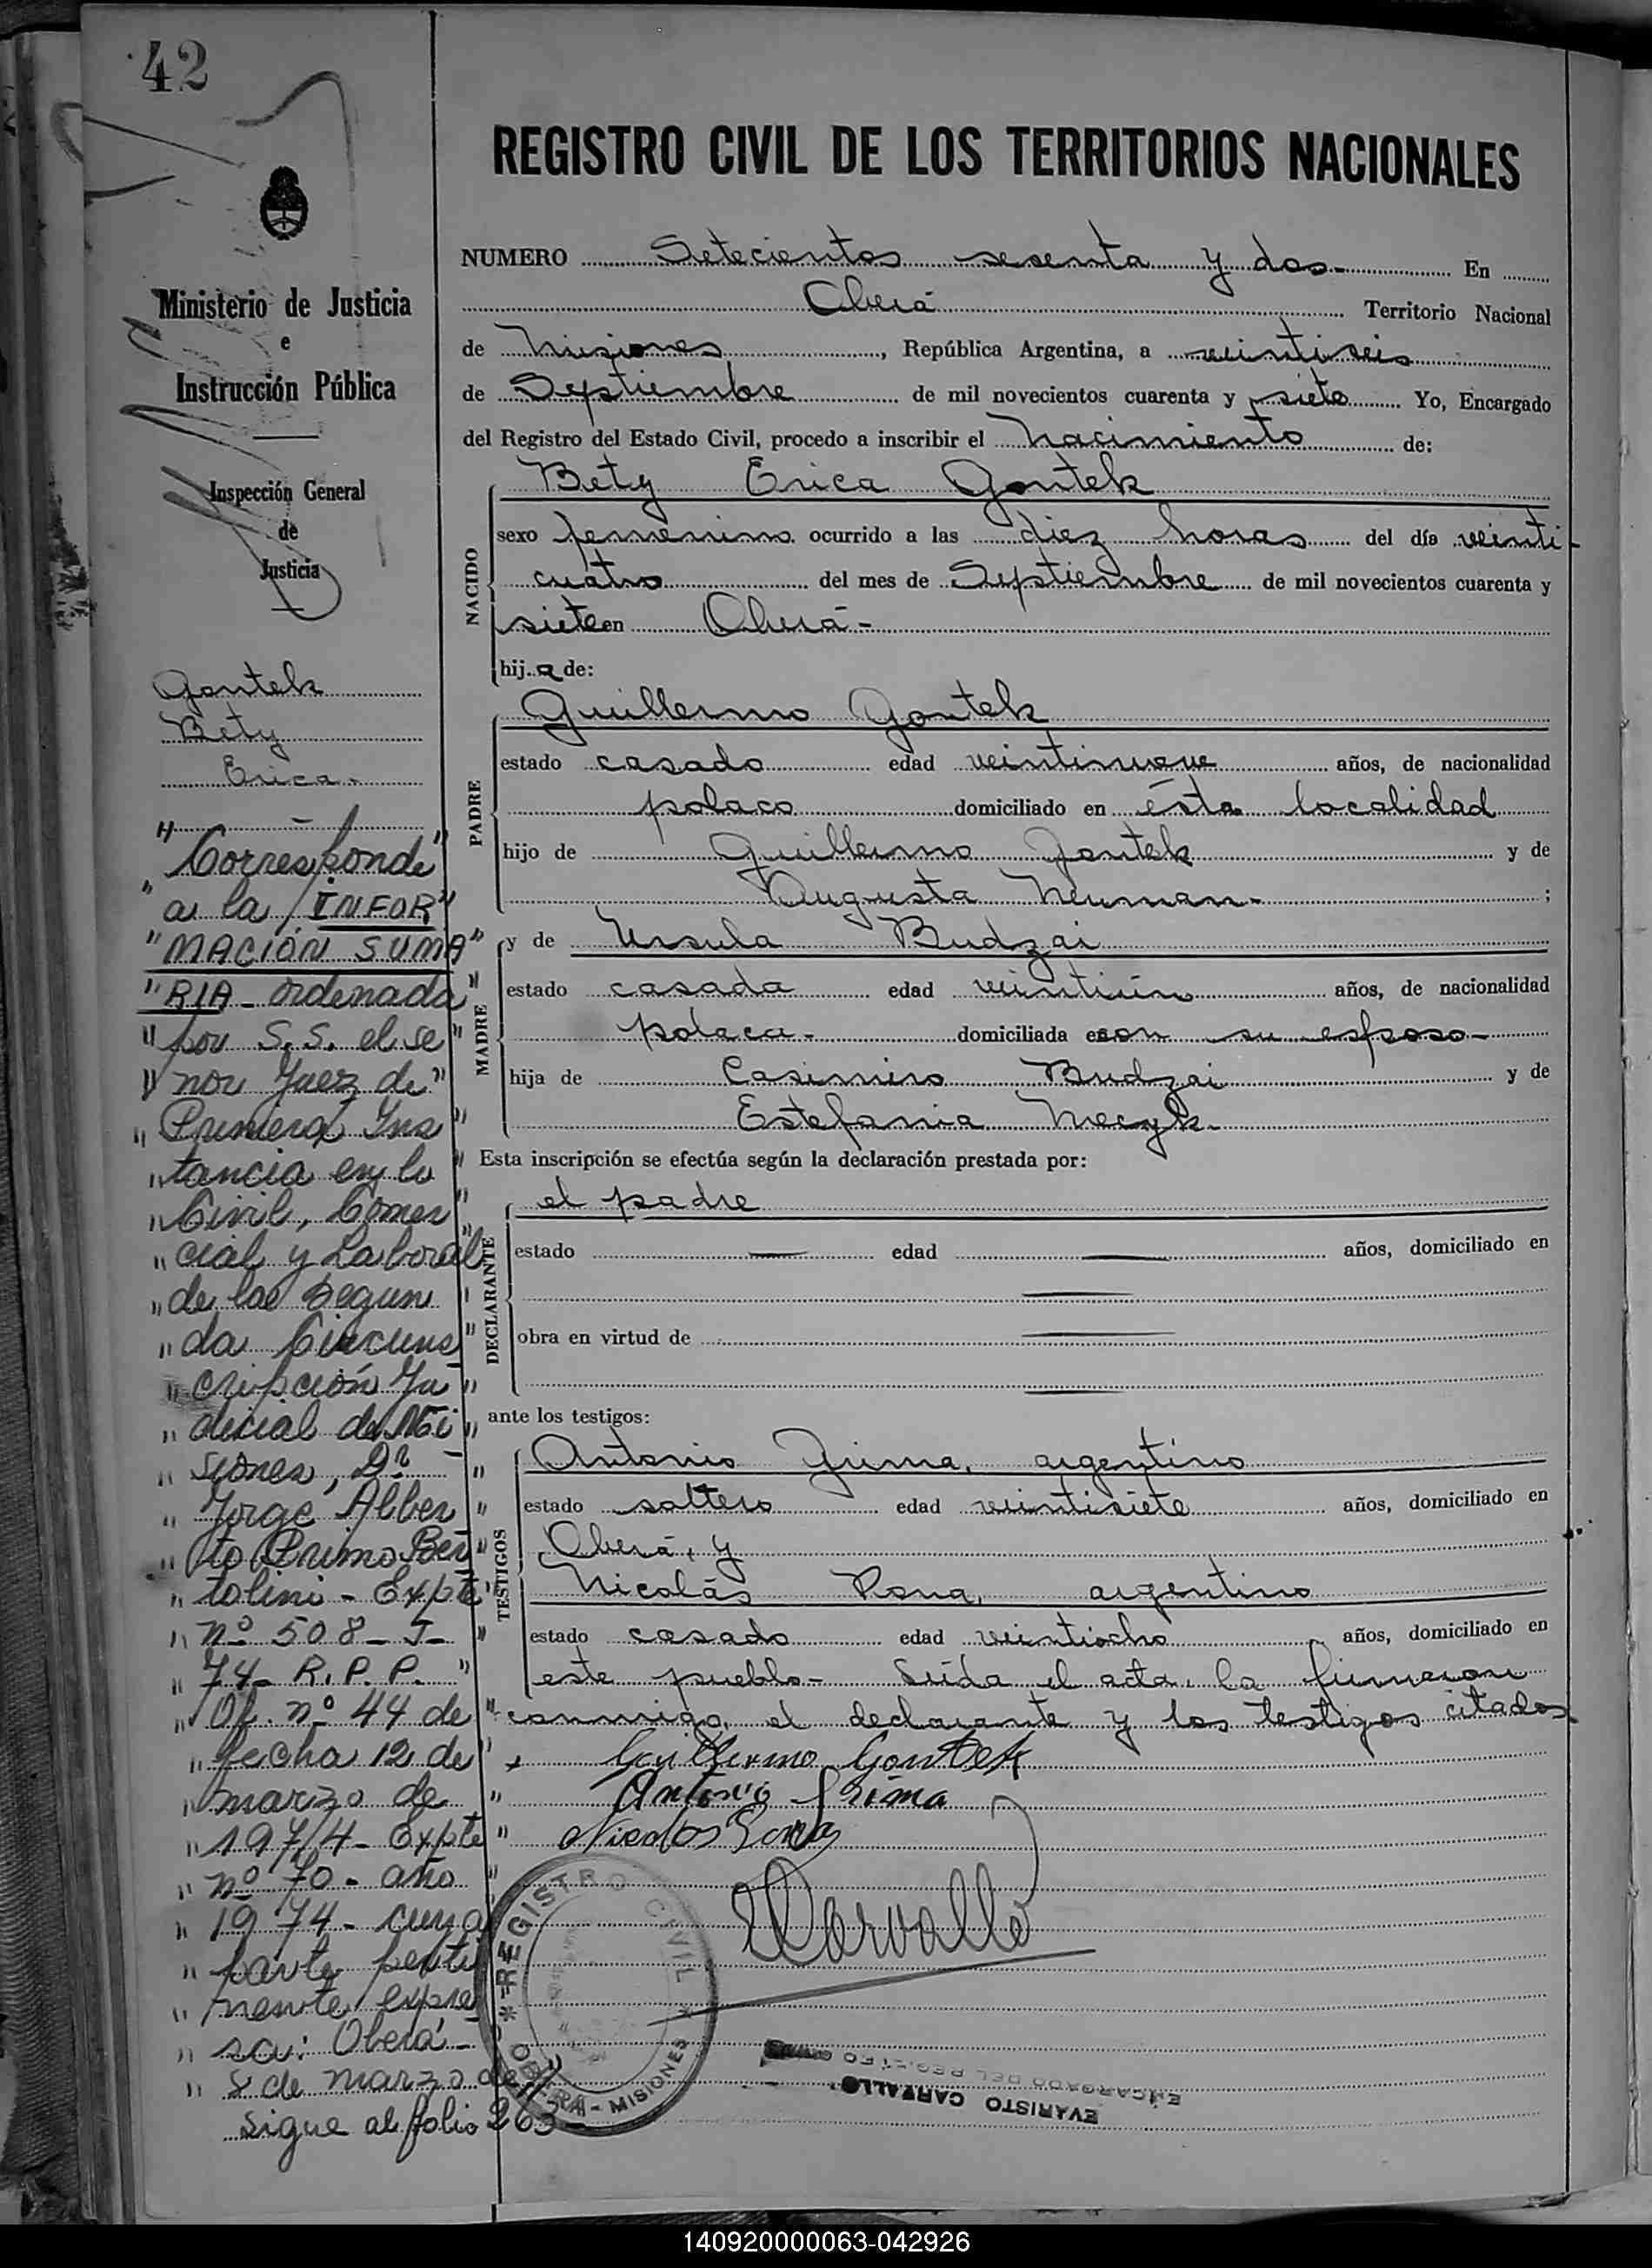 42
Ministerio de Justicia
e
Instrucción Pública
Inspección General
de
Justicia
Gontek
Bety
Erica.-
" - "
"Corresponde"
" a la INFOR"
"MACIÓN SUMA"
"RIA - ordenada"
" por S.S. el se "
" ñor Juez de "
" Primera Ins "
" tancia en lo "
" Civil, Comer "
" cial y Laboral "
" de la Segun "
" da Circuns "
" cripción Ju "
" dicial de Mi "
" siones, Dr. "
" Jorge Alber "
" to Primo Ber "
" tolini - Expte "
" nº 508 - J - "
" 74 - R.P.P. "
" Of. nº 44 de "
" fecha 12 de "
" marzo de "
" 1974 - Expte "
" nº 70 - año "
" 1974 - cuya
" parte perti
" nente expre
" sa: Oberá -
" 8 de marzo de "
sigue al folio 263-
REGISTRO CIVIL DE LOS TERRITORIOS NACIONALES
NUMERO Setecientos sesenta y dos.- En
Oberá Territorio Nacional
de Misiones, República Argentina, a veintiseis
de Septiembre de mil novecientos cuarenta y siete Yo, Encargado
del Registro del Estado Civil, procedo a inscribir el nacimiento de:
NACIDO
Bety Erica Gontek
sexo femenino ocurrido a las diez horas del día veinti-
cuatro del mes de Septiembre de mil novecientos cuarenta y
siete en Oberá-
hij a de:
PADRE
Guillermo Gontek
estado casado edad veintinueve años, de nacionalidad
polaco domiciliado en ésta localidad
hijo de Guillermo Gontek y de
Augusta Neuman- ;
MADRE
y de Ursula Budzai
estado casada edad veintiún años, de nacionalidad
polaca- domiciliada en con su esposo-
hija de Casimiro Budzai y de
Estefania
Esta inscripción se efectúa según la declaración prestada por:
DECLARANTE
el padre
estado — edad — años, domiciliado en
—
obra en virtud de —
—
ante los testigos:
TESTIGOS
Antonio Grima, argentino
estado soltero edad veintisiete años, domiciliado en
Oberá, y
Nicolás argentino
estado casado edad veintiocho años, domiciliado en
este pueblo- Leída el acta, la firmaron
conmigo, el declarante y los testigos citados
Guillermo Gontek
Antonio Grima
Nicolas
Carvallo
REGISTRO CIVIL
OBERÁ - MISIONES
EVARISTO CARVALLO
ENCARGADO DEL REGISTRO CIVIL
140920000063-042926